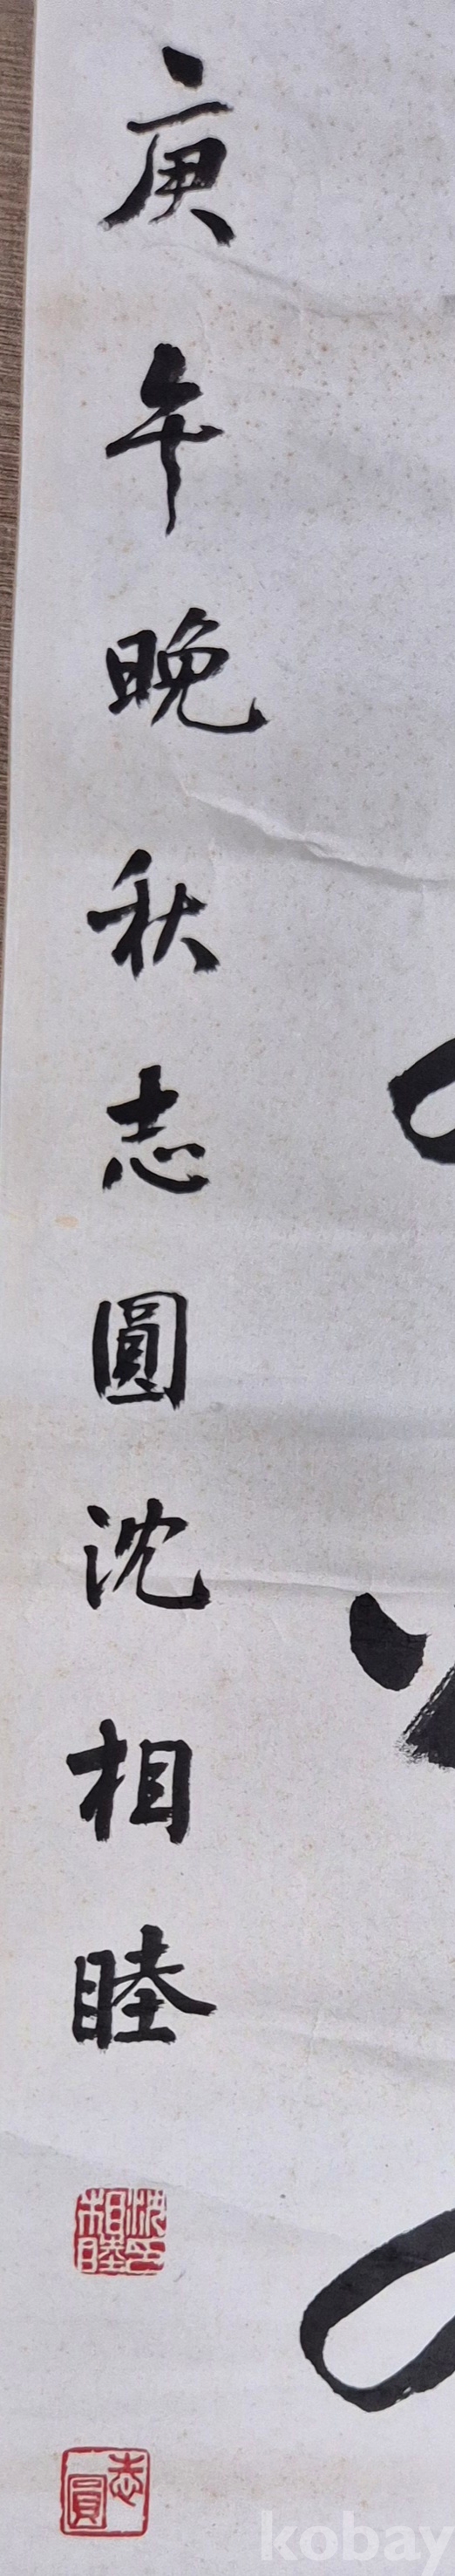 庚午晚秋志圓沈相睦
沈印相睦
志圓
kobay